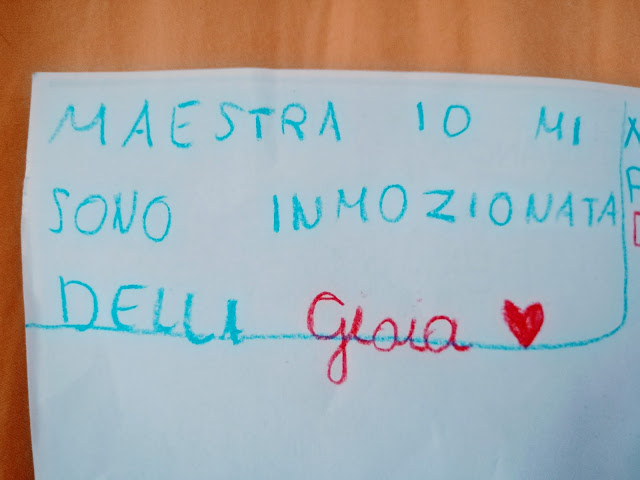 MAESTRA IO MI
SONO INMOZIONATA
DELLA Gioia ♥